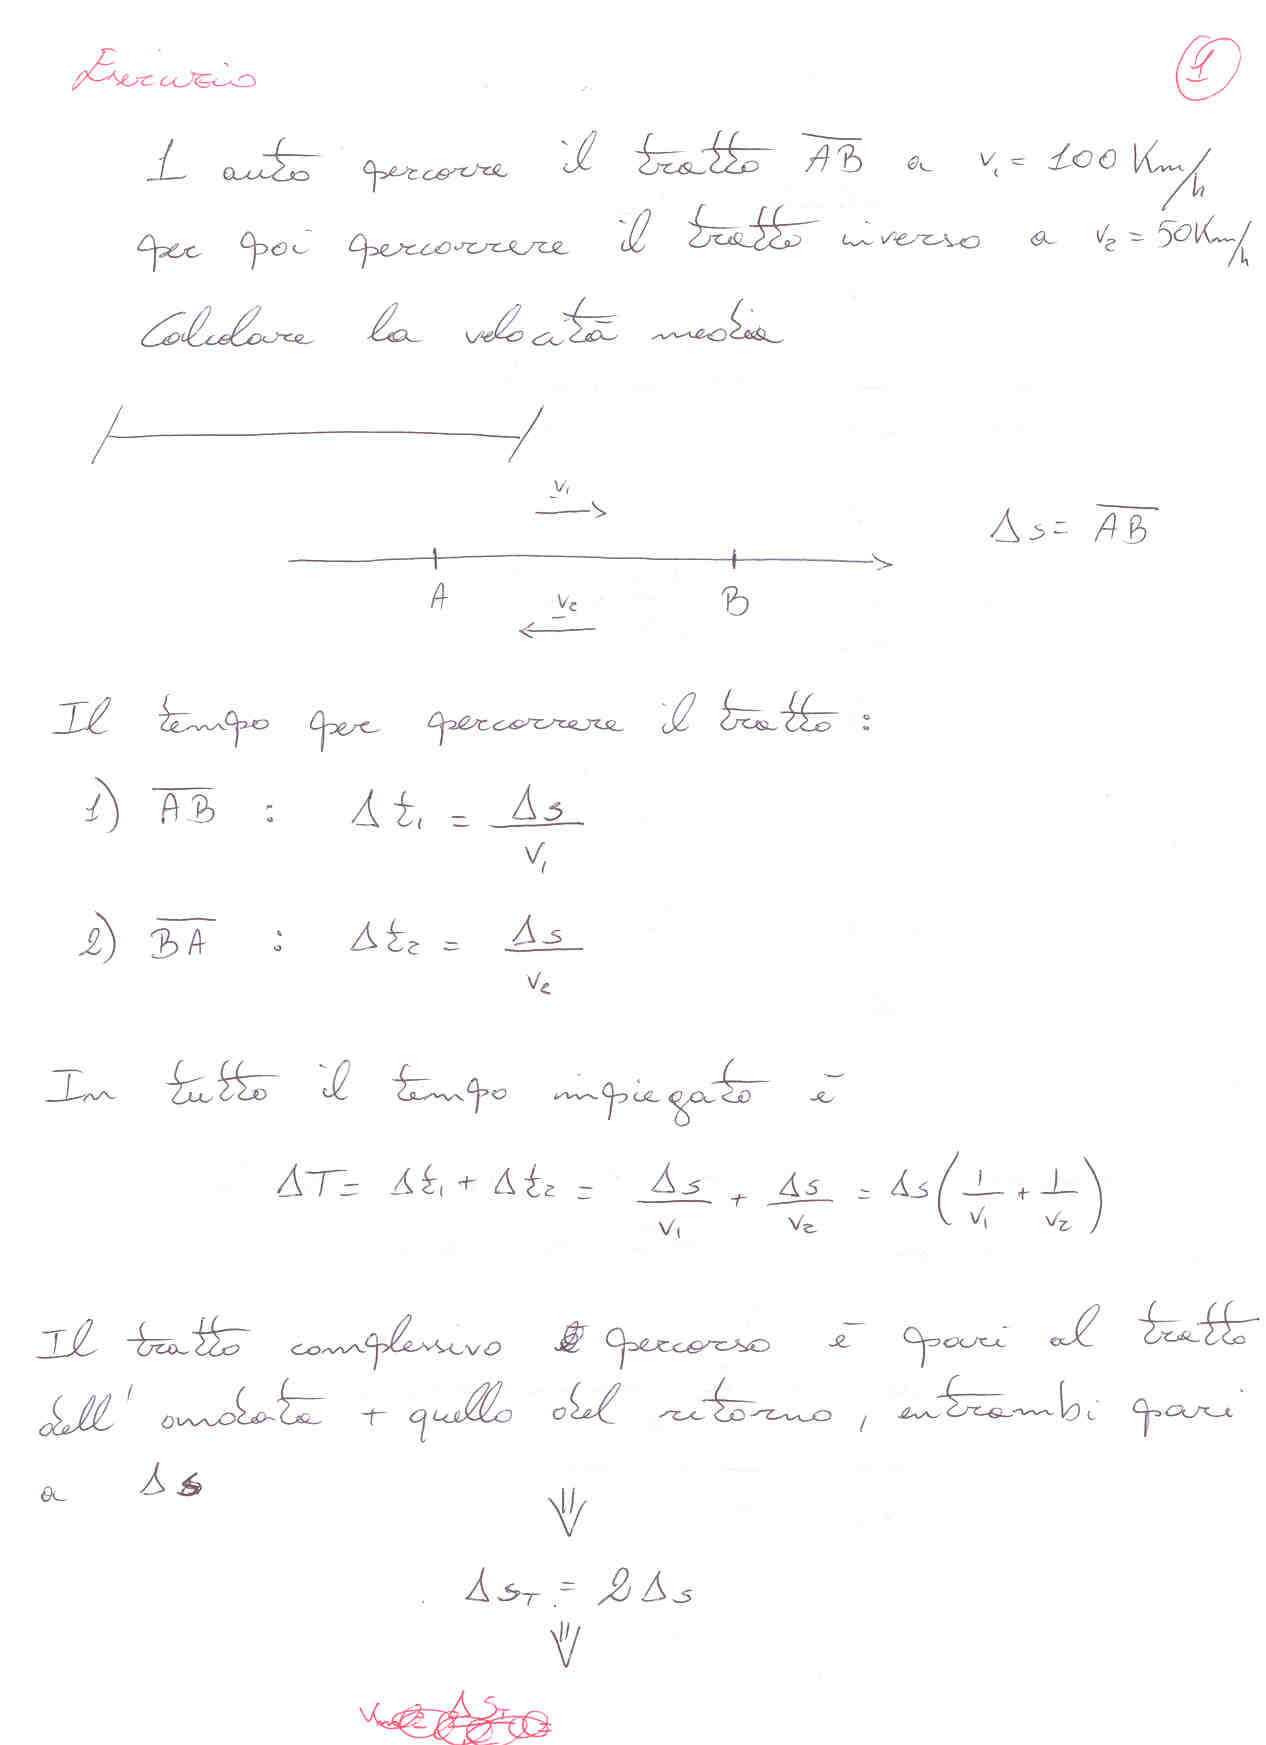 Esercizio
1
1 auto percorre il tratto A̅B̅ a v₁ = 100 Km/h
per poi percorrere il tratto inverso a v₂ = 50 Km/h
Calcolare la velocità media
v₁
Δs = A̅B̅
A
v₂
B
Il tempo per percorrere il tratto :
1) A̅B̅ : Δt₁ = Δs / v₁
2) B̅A̅ : Δt₂ = Δs / v₂
In tutto il tempo impiegato è
ΔT = Δt₁ + Δt₂ = Δs / v₁ + Δs / v₂ = Δs (1 / v₁ + 1 / v₂)
Il tratto complessivo percorso è pari al tratto
dell' andata + quello del ritorno, entrambi pari
a Δs
⇓
Δs_T = 2Δs
⇓